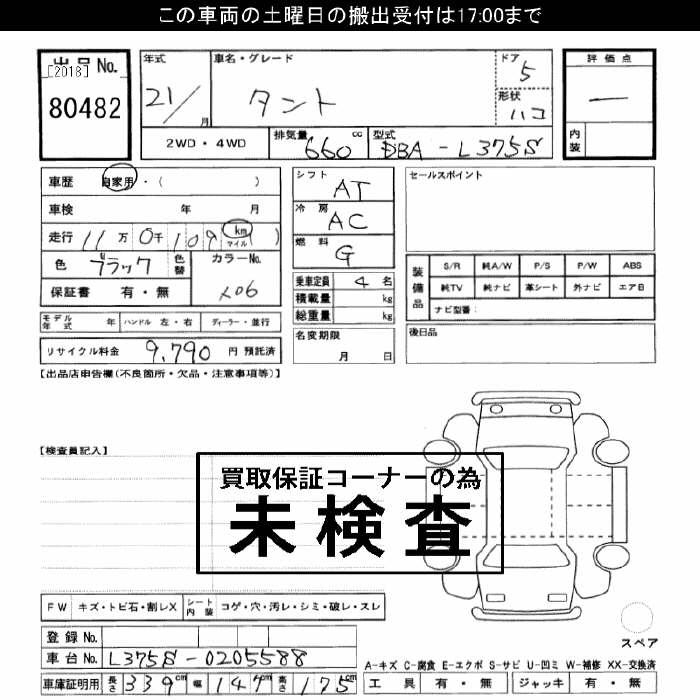 この車両の土曜日の搬出受付は17:00まで
出品No.
[2018]
80482
年式
21/
月
車名・グレード
タント
ドア
5
形状
ハコ
評価点
一
内装
2WD・4WD
排気量
660
cc
型式
DBA-L375S
車歴 自家用・( )
車検 年 月
走行 11万0千109 km マイル ( )
色 ブラック 色替 カラーNo.
保証書 有・無 X06
モデル年式 年 ハンドル 左・右 ディーラー・並行
リサイクル料金 9,790 円 預託済
シフト AT
冷房 AC
燃料 G
乗車定員 4 名
積載量 kg
総重量 kg
名変期限
月 日
セールスポイント
装備品
S/R 純A/W P/S P/W ABS
純TV 純ナビ 革シート 外ナビ エアB
ナビ型番:
後日品
【出品店申告欄(不良箇所・欠品・注意事項等)】
【検査員記入】
買取保証コーナーの為
未検査
FW キズ・トビ石・割レX シート内装 コゲ・穴・汚レ・シミ・破レ・スレ
スペア
登録No.
車台No. L375S-0205588
車庫証明用 長さ 339cm 幅 147cm 高さ 175cm
A-キズ C-腐食 E-エクボ S-サビ U-凹ミ W-補修 XX-交換済
工具 有・無 ジャッキ 有・無